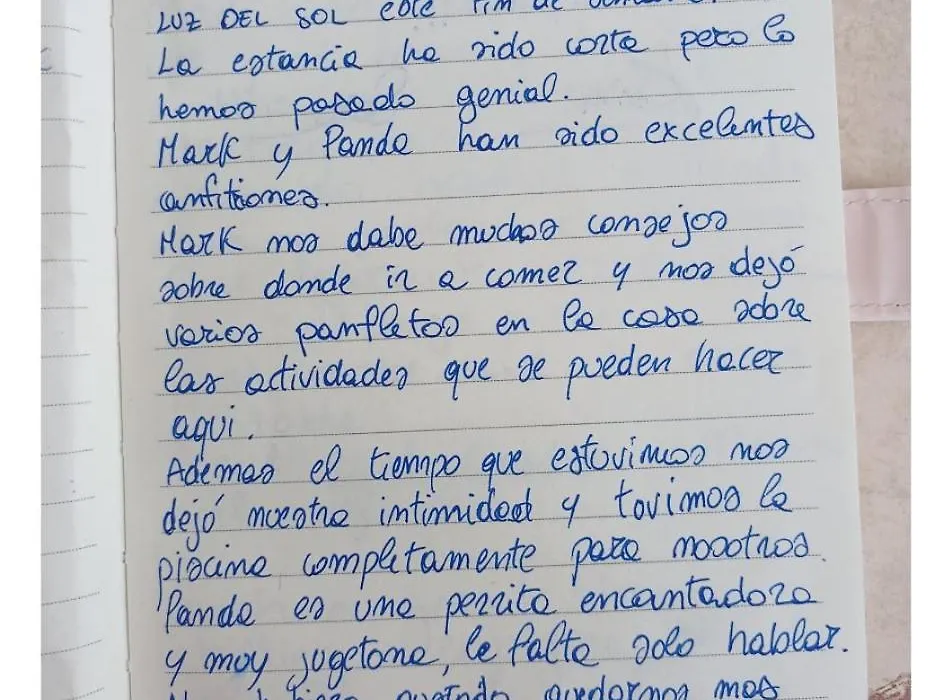 LUZ DEL SOL este fin de
La estancia ha sido corta pero lo
hemos pasado genial.
Mark y Panda han sido excelentes
anfitriones.
Mark nos daba muchos consejos
sobre donde ir a comer y nos dejó
varios panfletos en la casa sobre
las actividades que se pueden hacer
aqui.
Ademas el tiempo que estuvimos nos
dejó nuestra intimidad y tuvimos la
piscina completamente para nosotros.
Panda es una perrita encantadora
y muy jugetona, le falta solo hablar.